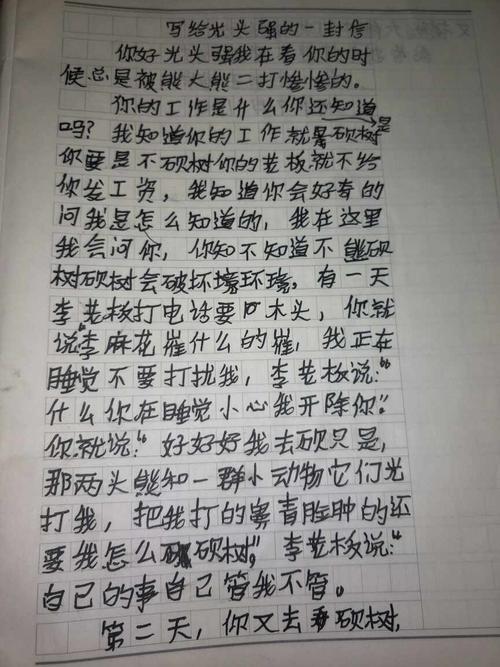 写给光头强的一封信
你好光头强我在看你的时
候总是被熊大熊二打惨惨的。
你的工作是什么你还知道
吗?我知道你的工作就是砍树是
你要是不砍树你的老板就不给
你发工资,我知道你会好奇的
问我是怎么知道的,我在这里
我会问你,你知不知道不能砍
树砍树会破坏壕环壕,有一天
李老板打电话要木头,你就
说“李麻花催什么的催,我正在
睡觉不要打扰我,李老板说:“
什么你在睡觉小心我开除你”。
你就说“好好好我去砍只是,
那两头熊和一群小动物它们光
打我,把我打的鼻青脸肿的还
要我怎么砍树”。李老板说:“
自己的事自己管我不管。
第二天,你又去砍树,